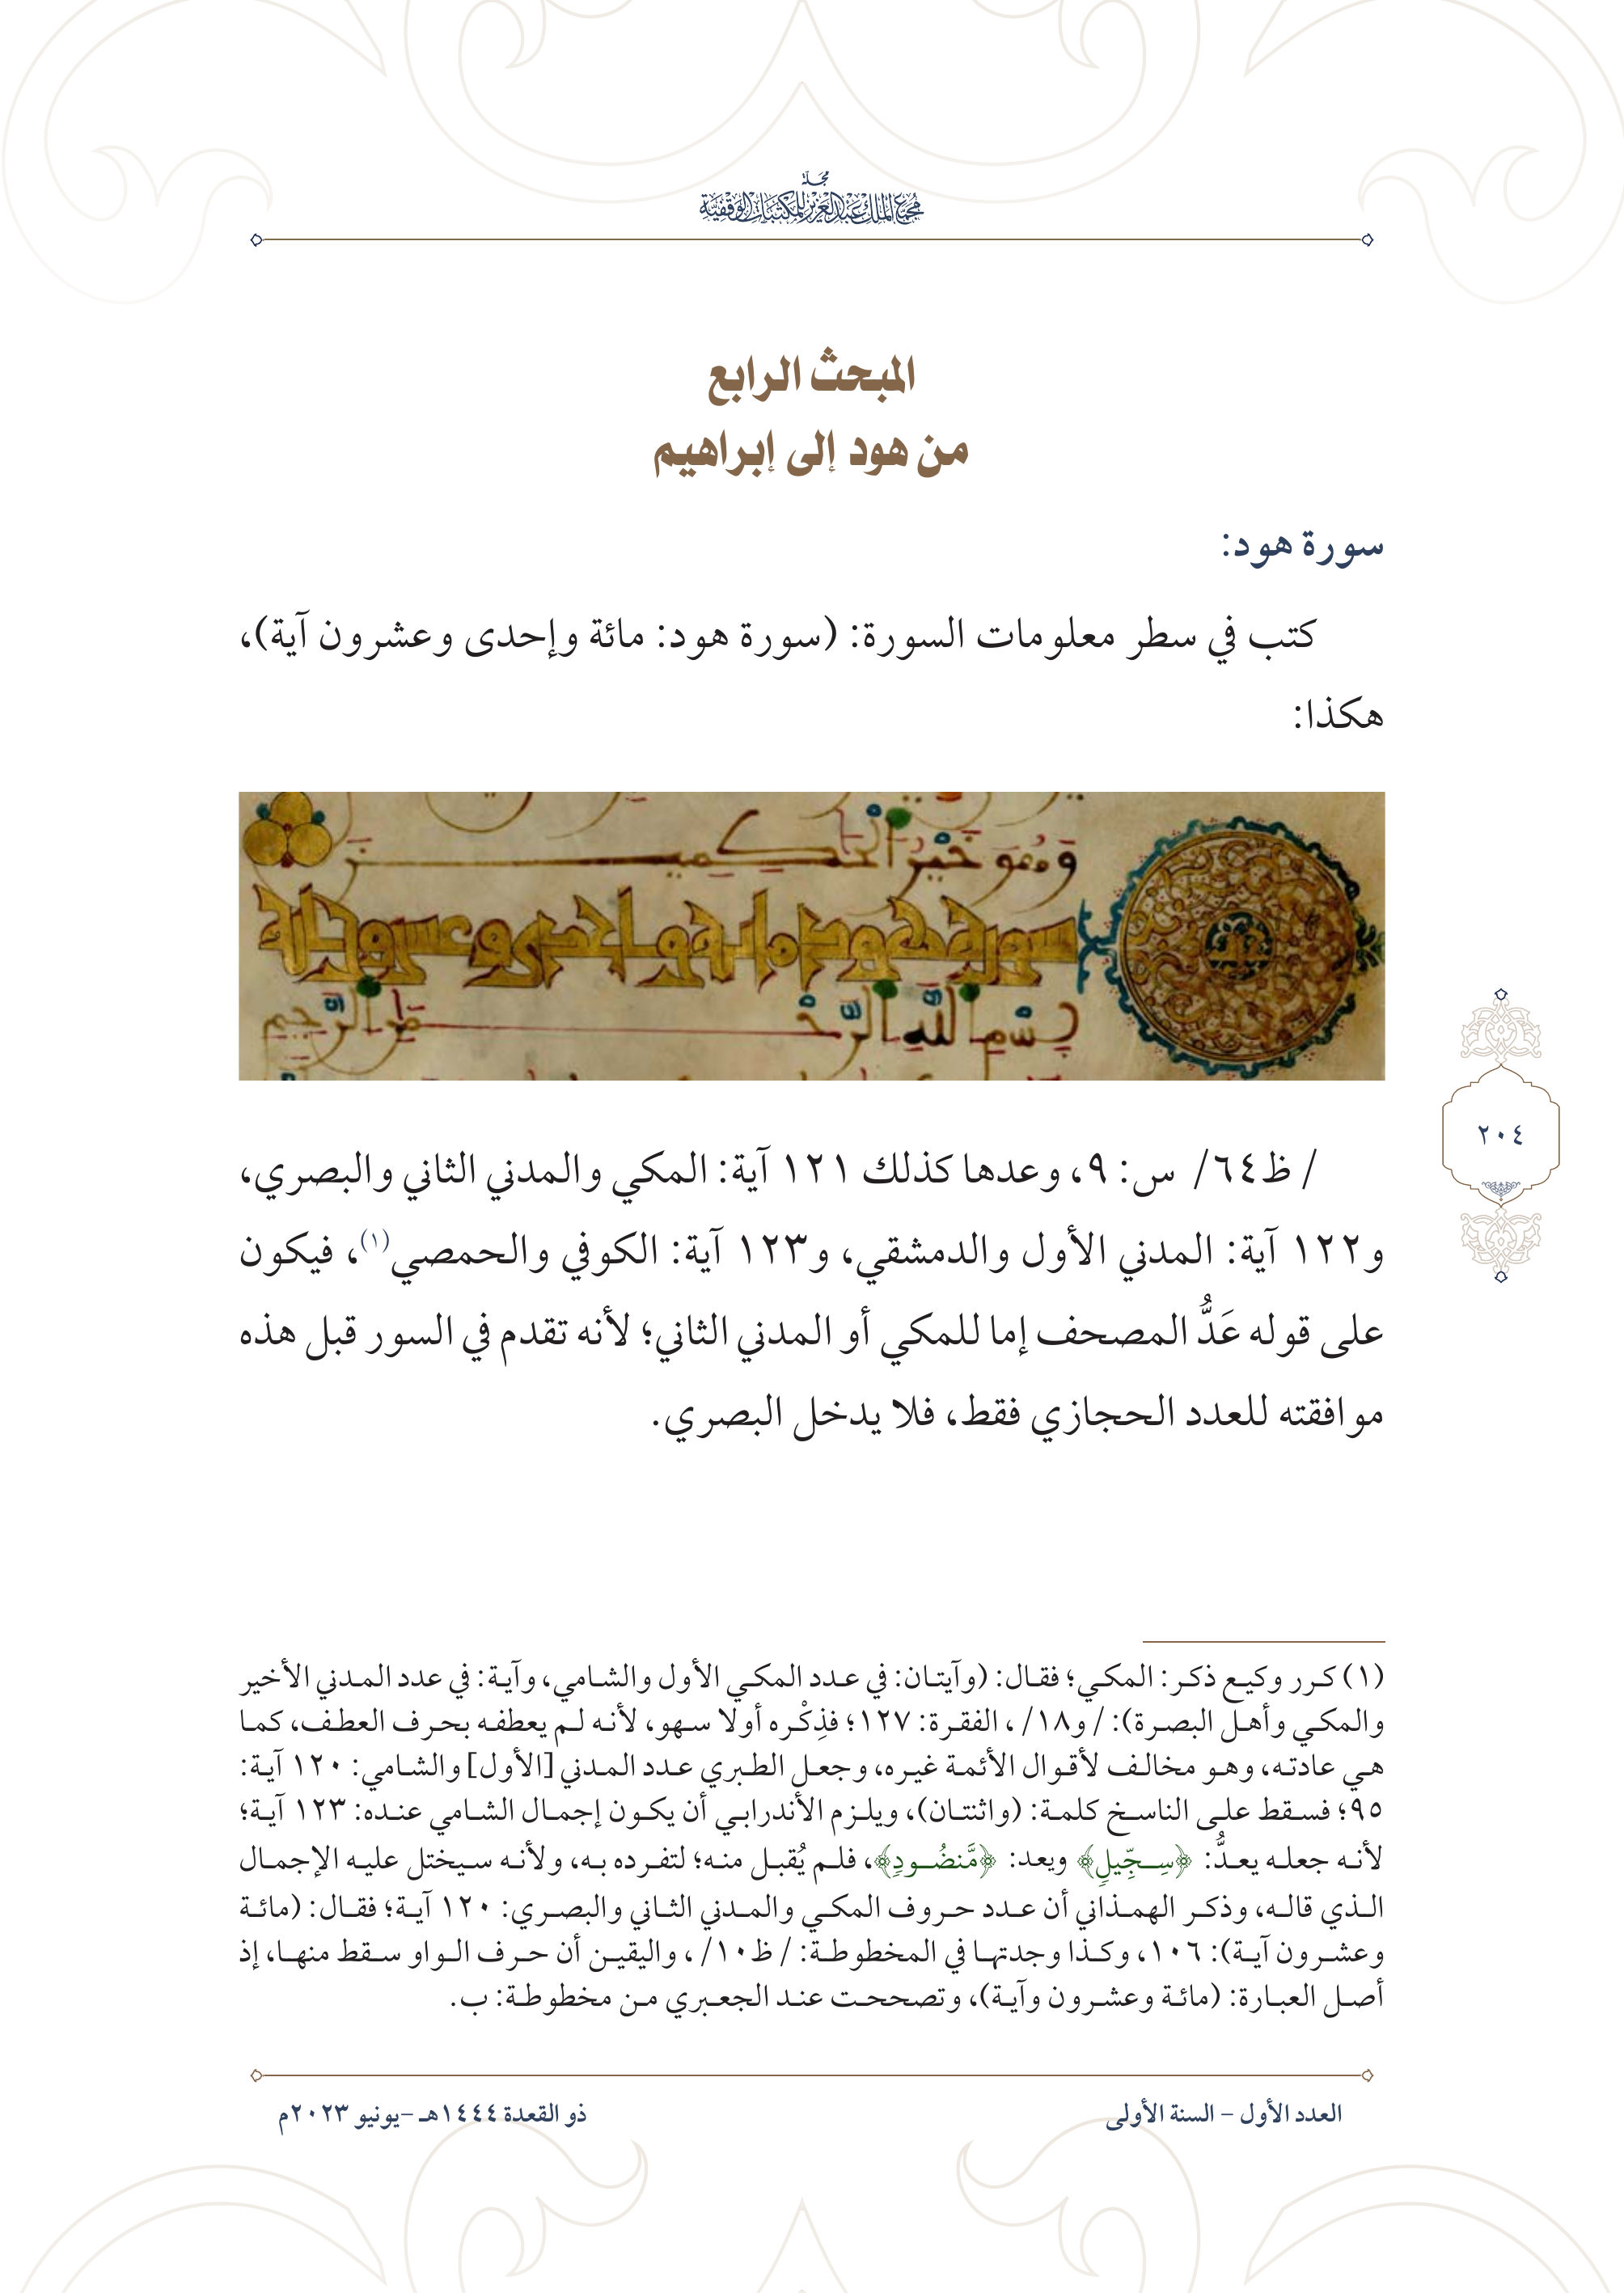 مجلة
مجمع الملك عبدالعزيز للمكتبات الوقفية
المبحث الرابع
من هود إلى إبراهيم
سورة هود:
كتب في سطر معلومات السورة: (سورة هود: مائة وإحدى وعشرون آية)،
هكذا:
وَهُوَ خَيْرُ الْحَكِمِينَ
سورة هود مائة وإحدى وعشرون آية
بِسْمِ اللَّهِ الرَّحْمَنِ الرَّحِيمِ
/ ظ٦٤/ س: ٩، وعدها كذلك ١٢١ آية: المكي والمدني الثاني والبصري،
و١٢٢ آية: المدني الأول والدمشقي، و١٢٣ آية: الكوفي والحمصي(١)، فيكون
على قوله عَدُّ المصحف إما للمكي أو المدني الثاني؛ لأنه تقدم في السور قبل هذه
موافقته للعدد الحجازي فقط، فلا يدخل البصري.
٢٠٤
(١) كرر وكيع ذكر: المكي؛ فقال: (وآيتان: في عدد المكي الأول والشامي، وآية: في عدد المدني الأخير
والمكي وأهل البصرة): /و١٨/، الفقرة: ١٢٧؛ فذِكْره أولا سهو، لأنه لم يعطفه بحرف العطف، كما
هي عادته، وهو مخالف لأقوال الأئمة غيره، وجعل الطبري عدد المدني [الأول] والشامي: ١٢٠ آية:
٩٥؛ فسقط على الناسخ كلمة: (واثنتان)، ويلزم الأندرابي أن يكون إجمال الشامي عنده: ١٢٣ آية؛
لأنه جعله يعدُّ: ﴿سِجِّيلٍ﴾ ويعد: ﴿مَّنضُودٍ﴾، فلم يُقبل منه؛ لتفرده به، ولأنه سيختل عليه الإجمال
الذي قاله، وذكر الهمذاني أن عدد حروف المكي والمدني الثاني والبصري: ١٢٠ آية؛ فقال: (مائة
وعشرون آية): ١٠٦، وكذا وجدتها في المخطوطة: / ظ١٠/، واليقين أن حرف الواو سقط منها، إذ
أصل العبارة: (مائة وعشرون وآية)، وتصححت عند الجعبري من مخطوطة: ب.
العدد الأول – السنة الأولى
ذو القعدة ١٤٤٤هـ –يونيو ٢٠٢٣م